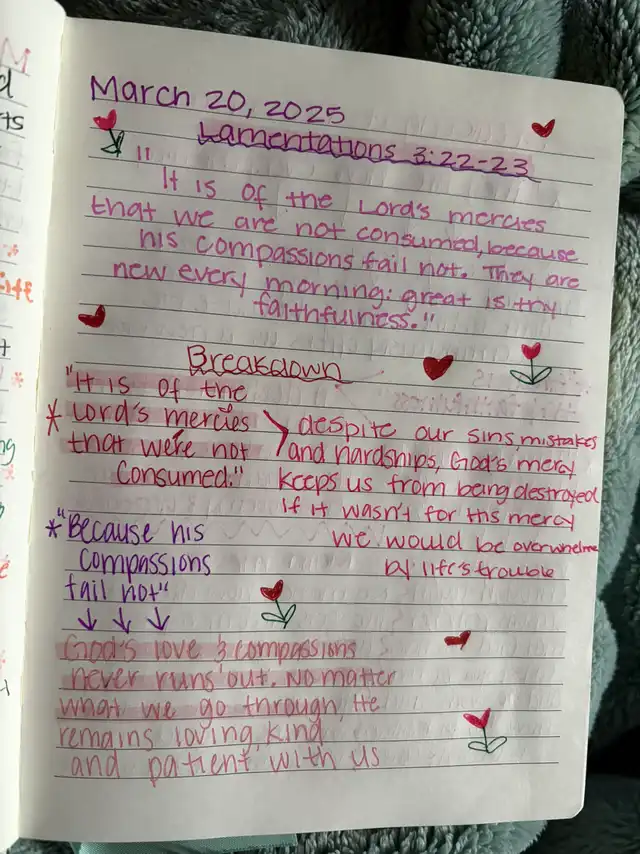 March 20, 2025
Lamentations 3:22-23
"It is of the Lord's mercies
that we are not consumed, because
his compassions fail not. They are
new every morning: great is thy
faithfulness."
Breakdown
"It is of the
* Lord's mercies
that we're not
consumed."
despite our sins mistakes
and hardships, God's mercy
keeps us from being destroyed
If it wasn't for his mercy
we would be overwhelme
by life's trouble
*"Because his
compassions
fail not"
God's love & compassions
never runs out. No matter
what we go through, He
remains loving, kind
and patient with us